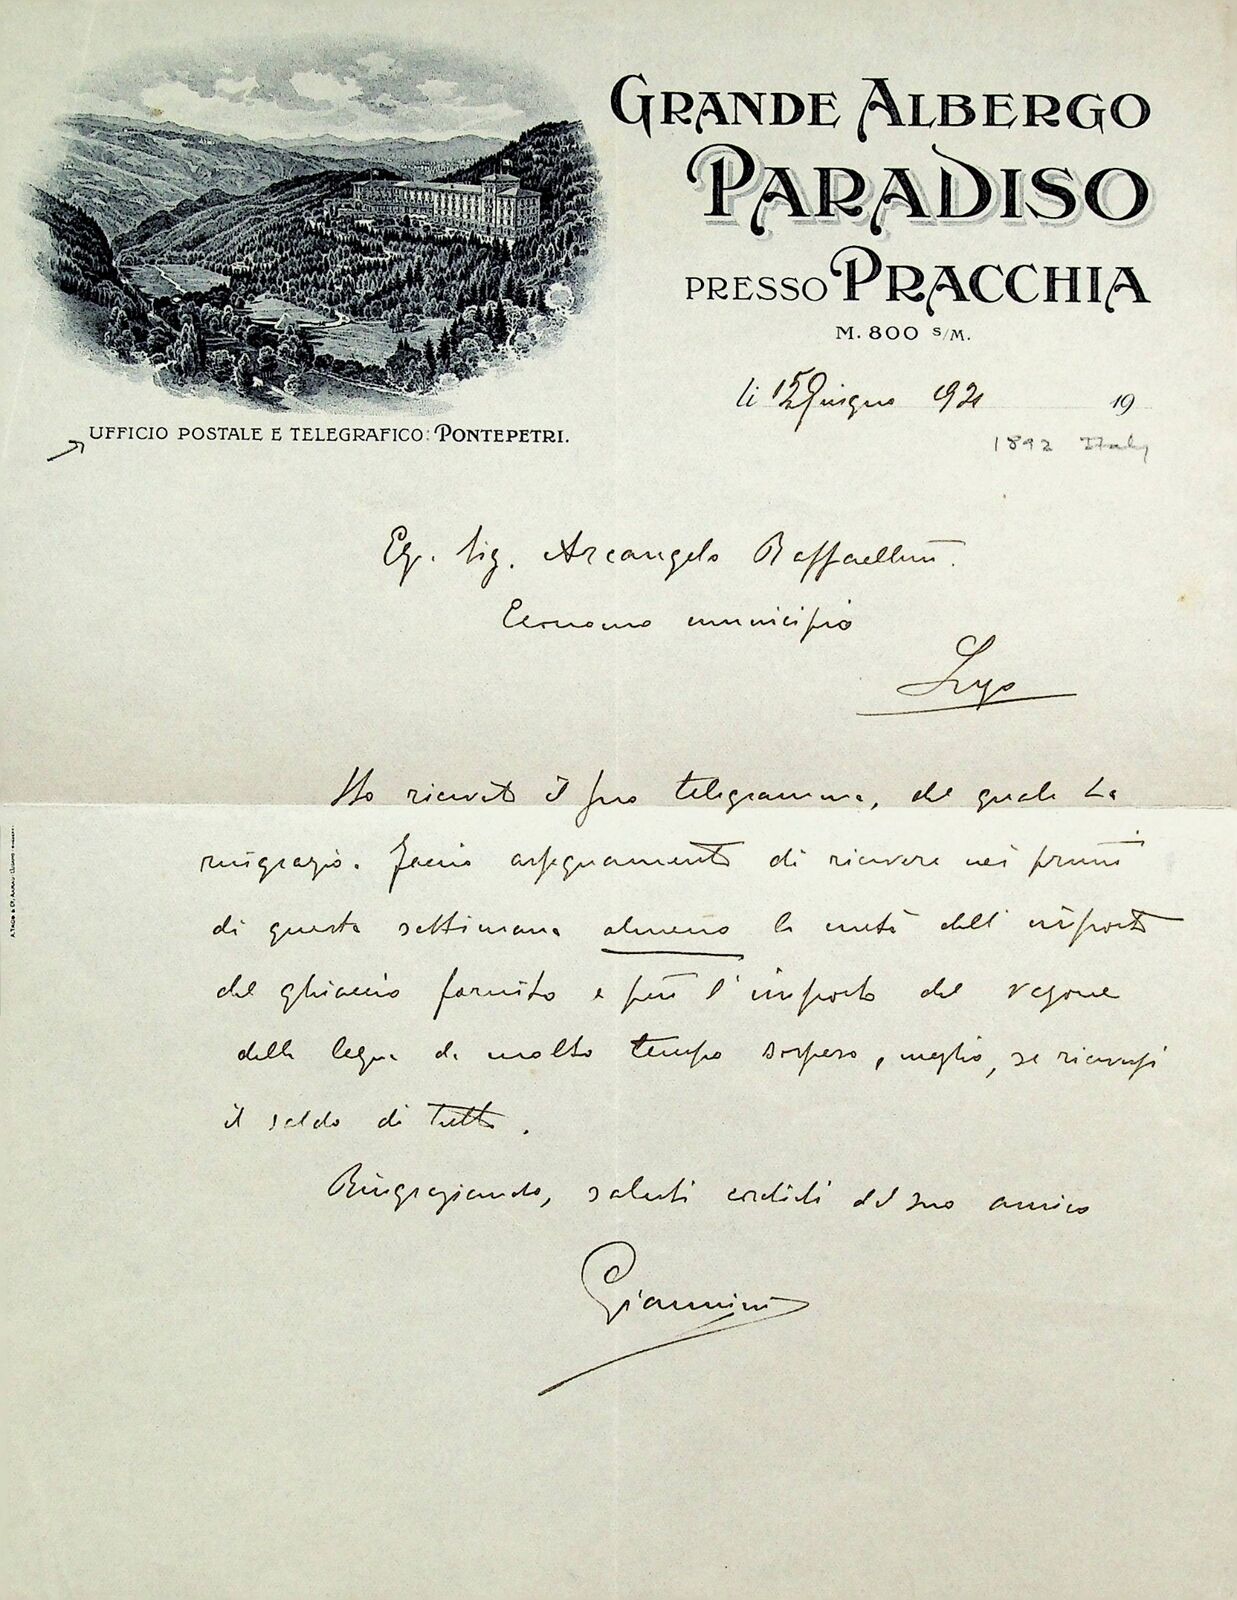 GRANDE ALBERGO
PARADISO
PRESSO PRACCHIA
M. 800 S/M.
li 15 Giugno 921 19
1892 Italy
UFFICIO POSTALE E TELEGRAFICO: PONTEPETRI.
Eg. Sig. Arcangelo Raffaellini
Economo municipio
Lugo
Ho ricevuto il suo telegramma, del quale La
ringrazio. Faccio assegnamento di ricevere nei primi
di questa settimana almeno la metà dell'importo
del ghiaccio fornito e più l'importo del vagone
della legna da molto tempo sospeso, meglio, se ricevessi
il saldo di tutto.
Ringraziando, saluti cordiali dal suo amico
Giannini